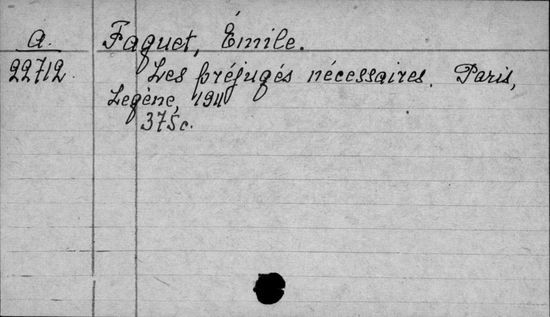 a. Faguet, Émile.
22712. Les préjugés nécessaires. Paris,
Legène, 1911
375c.